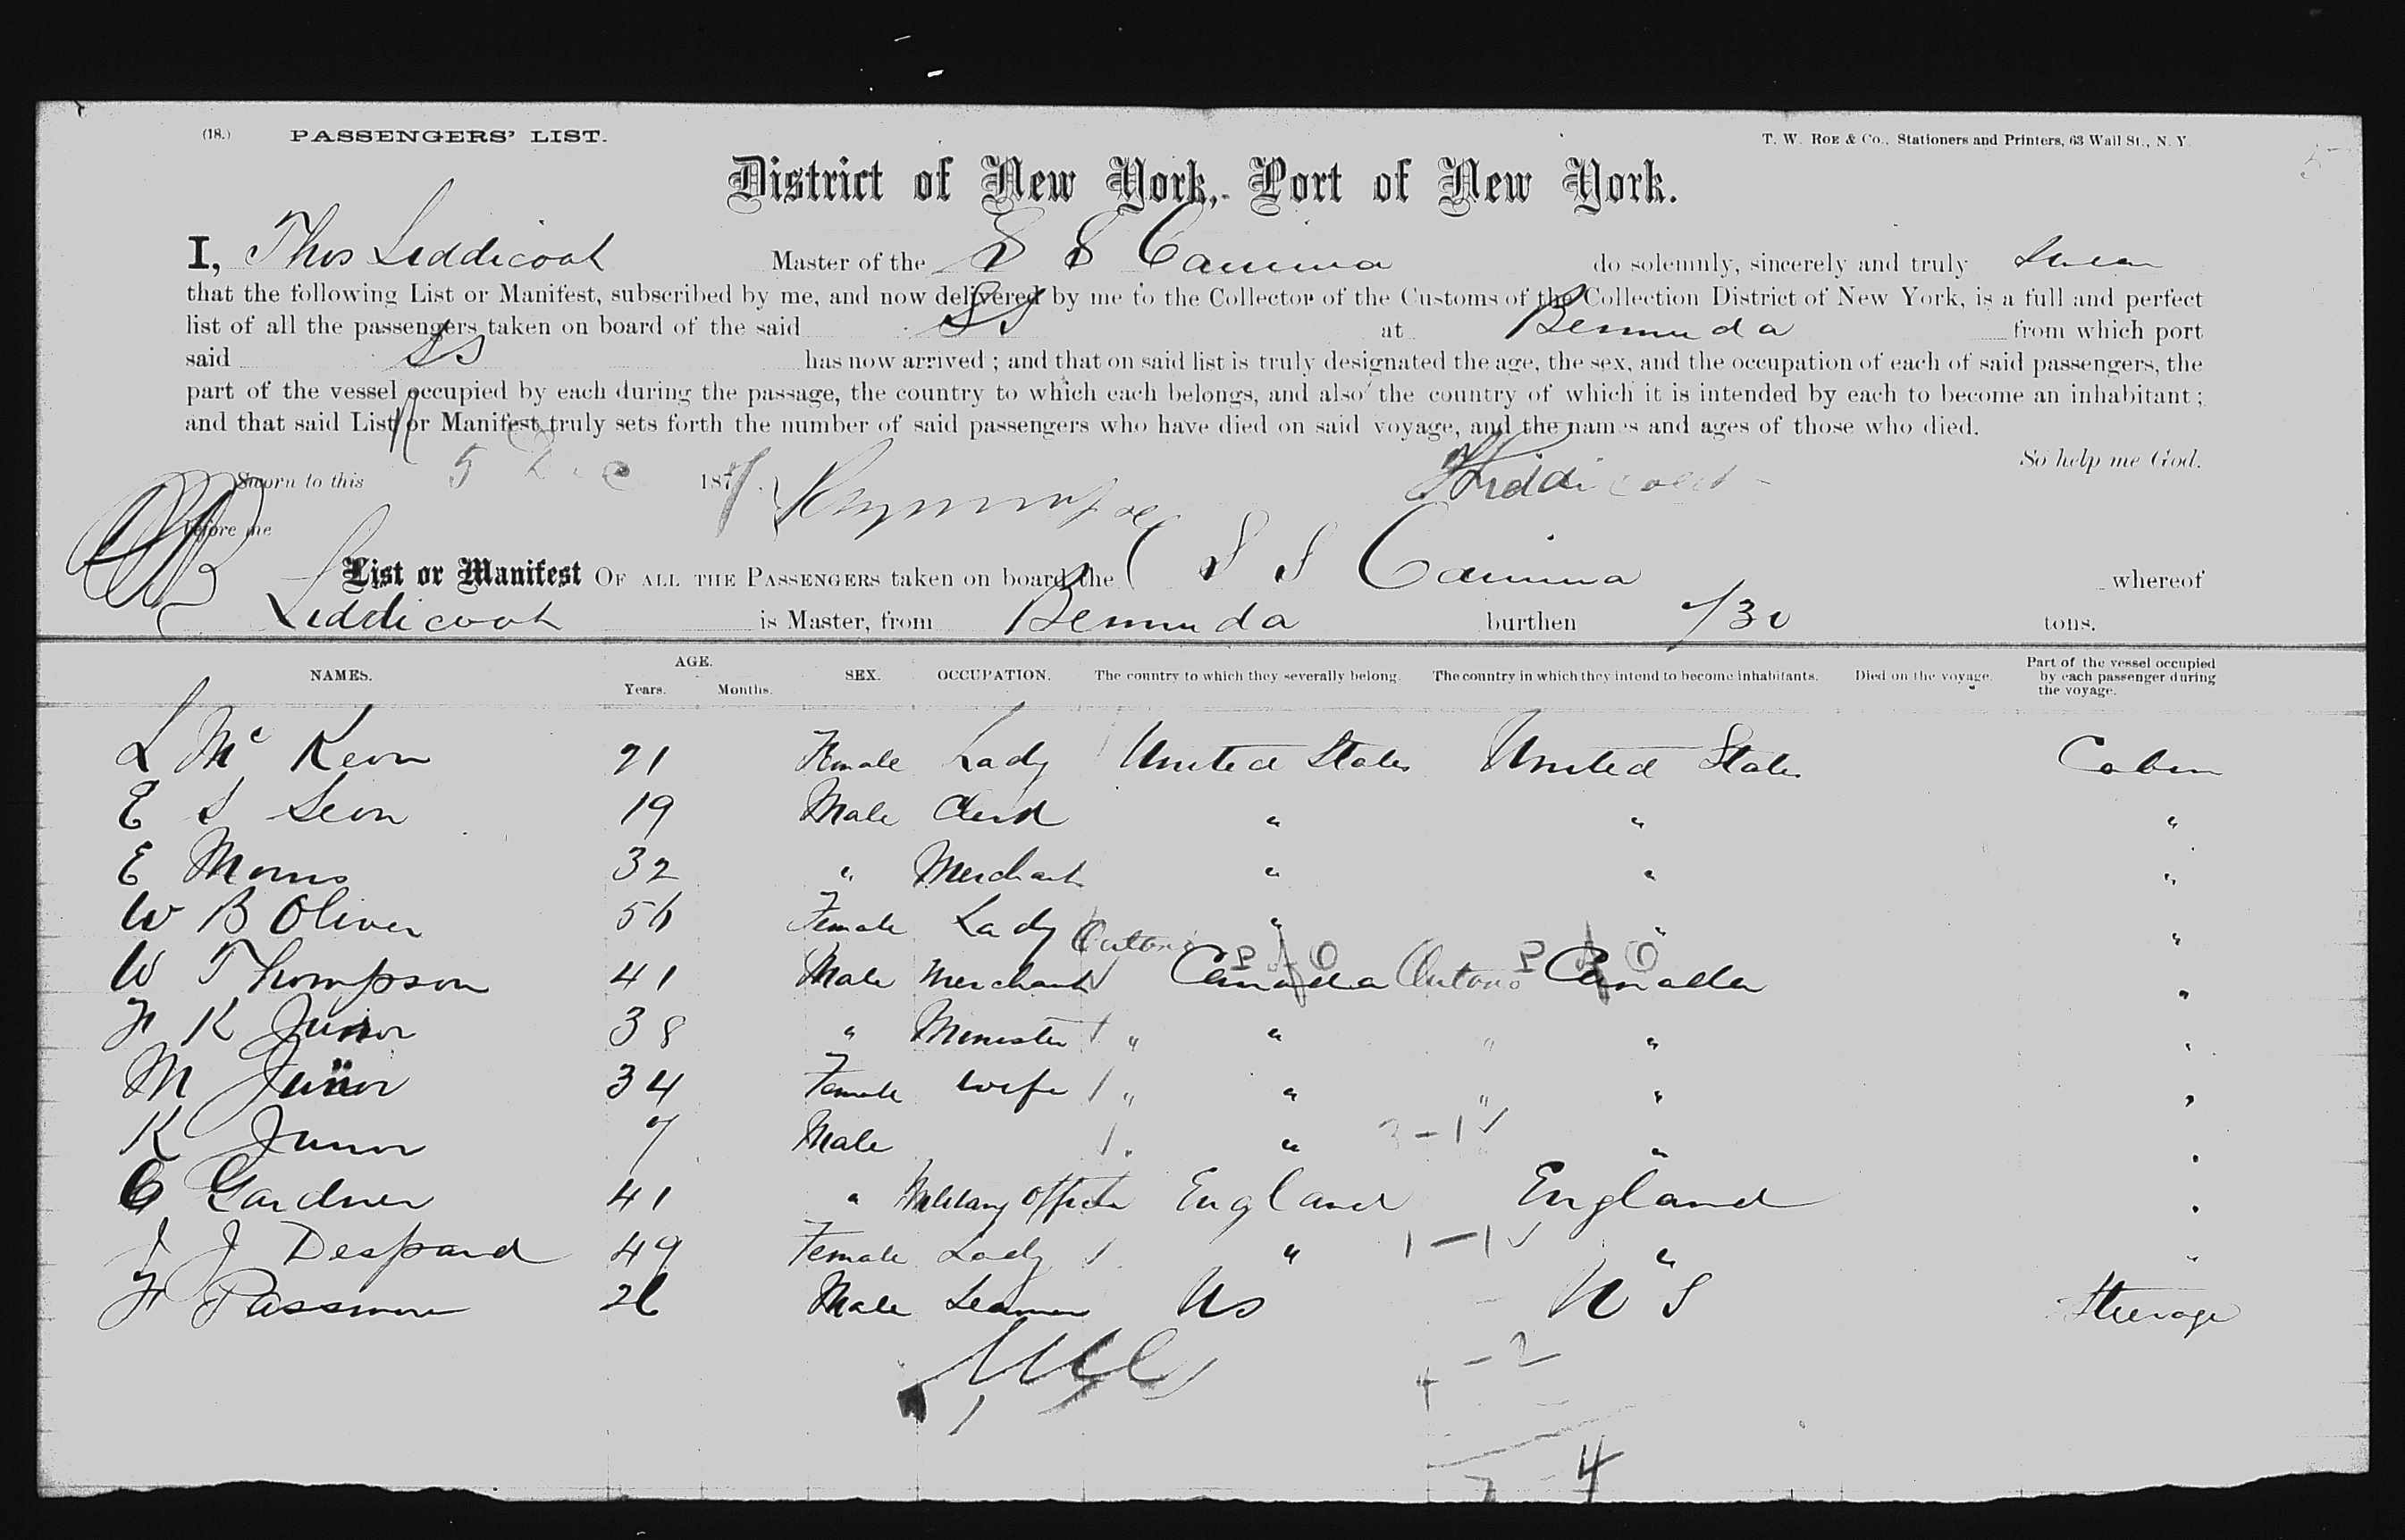 (18.) PASSENGERS' LIST. T. W. ROE & Co., Stationers and Printers, 63 Wall St., N. Y.
District of New York, Port of New York.
I, Thos Liddicoat Master of the S S Canima do solemnly, sincerely and truly swear
that the following List or Manifest, subscribed by me, and now delivered by me to the Collector of the Customs of the Collection District of New York, is a full and perfect
list of all the passengers taken on board of the said SS at Bermuda from which port
said SS has now arrived; and that on said list is truly designated the age, the sex, and the occupation of each of said passengers, the
part of the vessel occupied by each during the passage, the country to which each belongs, and also the country of which it is intended by each to become an inhabitant;
and that said List or Manifest truly sets forth the number of said passengers who have died on said voyage, and the names and ages of those who died.
So help me God.
Sworn to this 5 Dec 187 Liddicoat
before me
List or Manifest OF ALL THE PASSENGERS taken on board the S S Canima whereof
Liddicoat is Master, from Bermuda burthen 730 tons.
NAMES. AGE. Years. Months. SEX. OCCUPATION. The country to which they severally belong. The country in which they intend to become inhabitants. Died on the voyage. Part of the vessel occupied by each passenger during the voyage.
L Mc Keon 21 Female Lady United States United States Cabin
E S Leon 19 Male Clerk " " "
E Morris 32 " Merchant " " "
W B Oliver 56 Female Lady " " "
W Thompson 41 Male Merchant Ontario Canada Ontario Canada "
F K Junor 38 " Minister 1 " " " " "
M Junor 34 Female Wife 1 " " " " "
K Junor 7 Male 1 " " "
3-1 ✓
C Gardner 41 " Military Officer England England "
J J Despard 49 Female Lady 1 " 1-1 ✓ " "
F Passmore 26 Male Seaman US U S Steerage
4 - 2
7 4